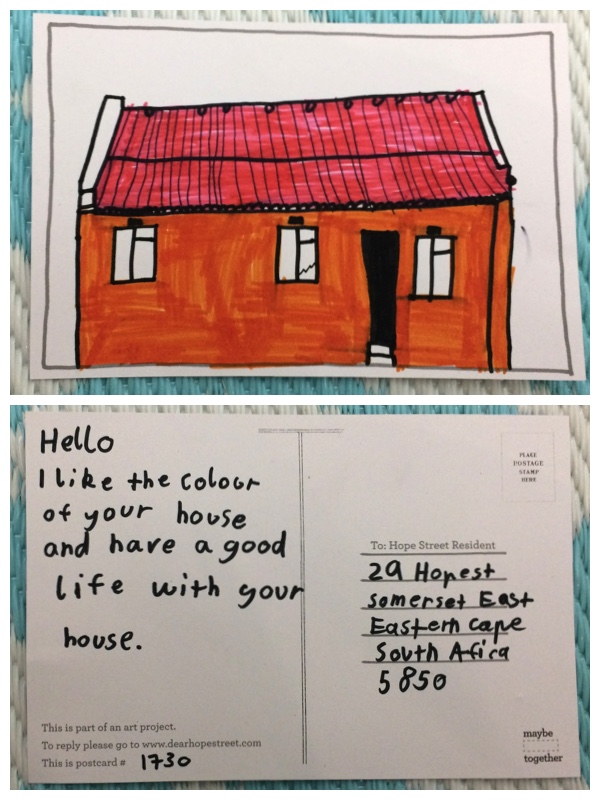 Hello
I like the colour
of your house
and have a good
life with your
house.
This is part of an art project.
To reply please go to www.dearhopestreet.com
This is postcard # 1730
PLACE
POSTAGE
STAMP
HERE
To: Hope Street Resident
29 Hopest
somerset East
Eastern cape
South Afica
5850
maybe
together